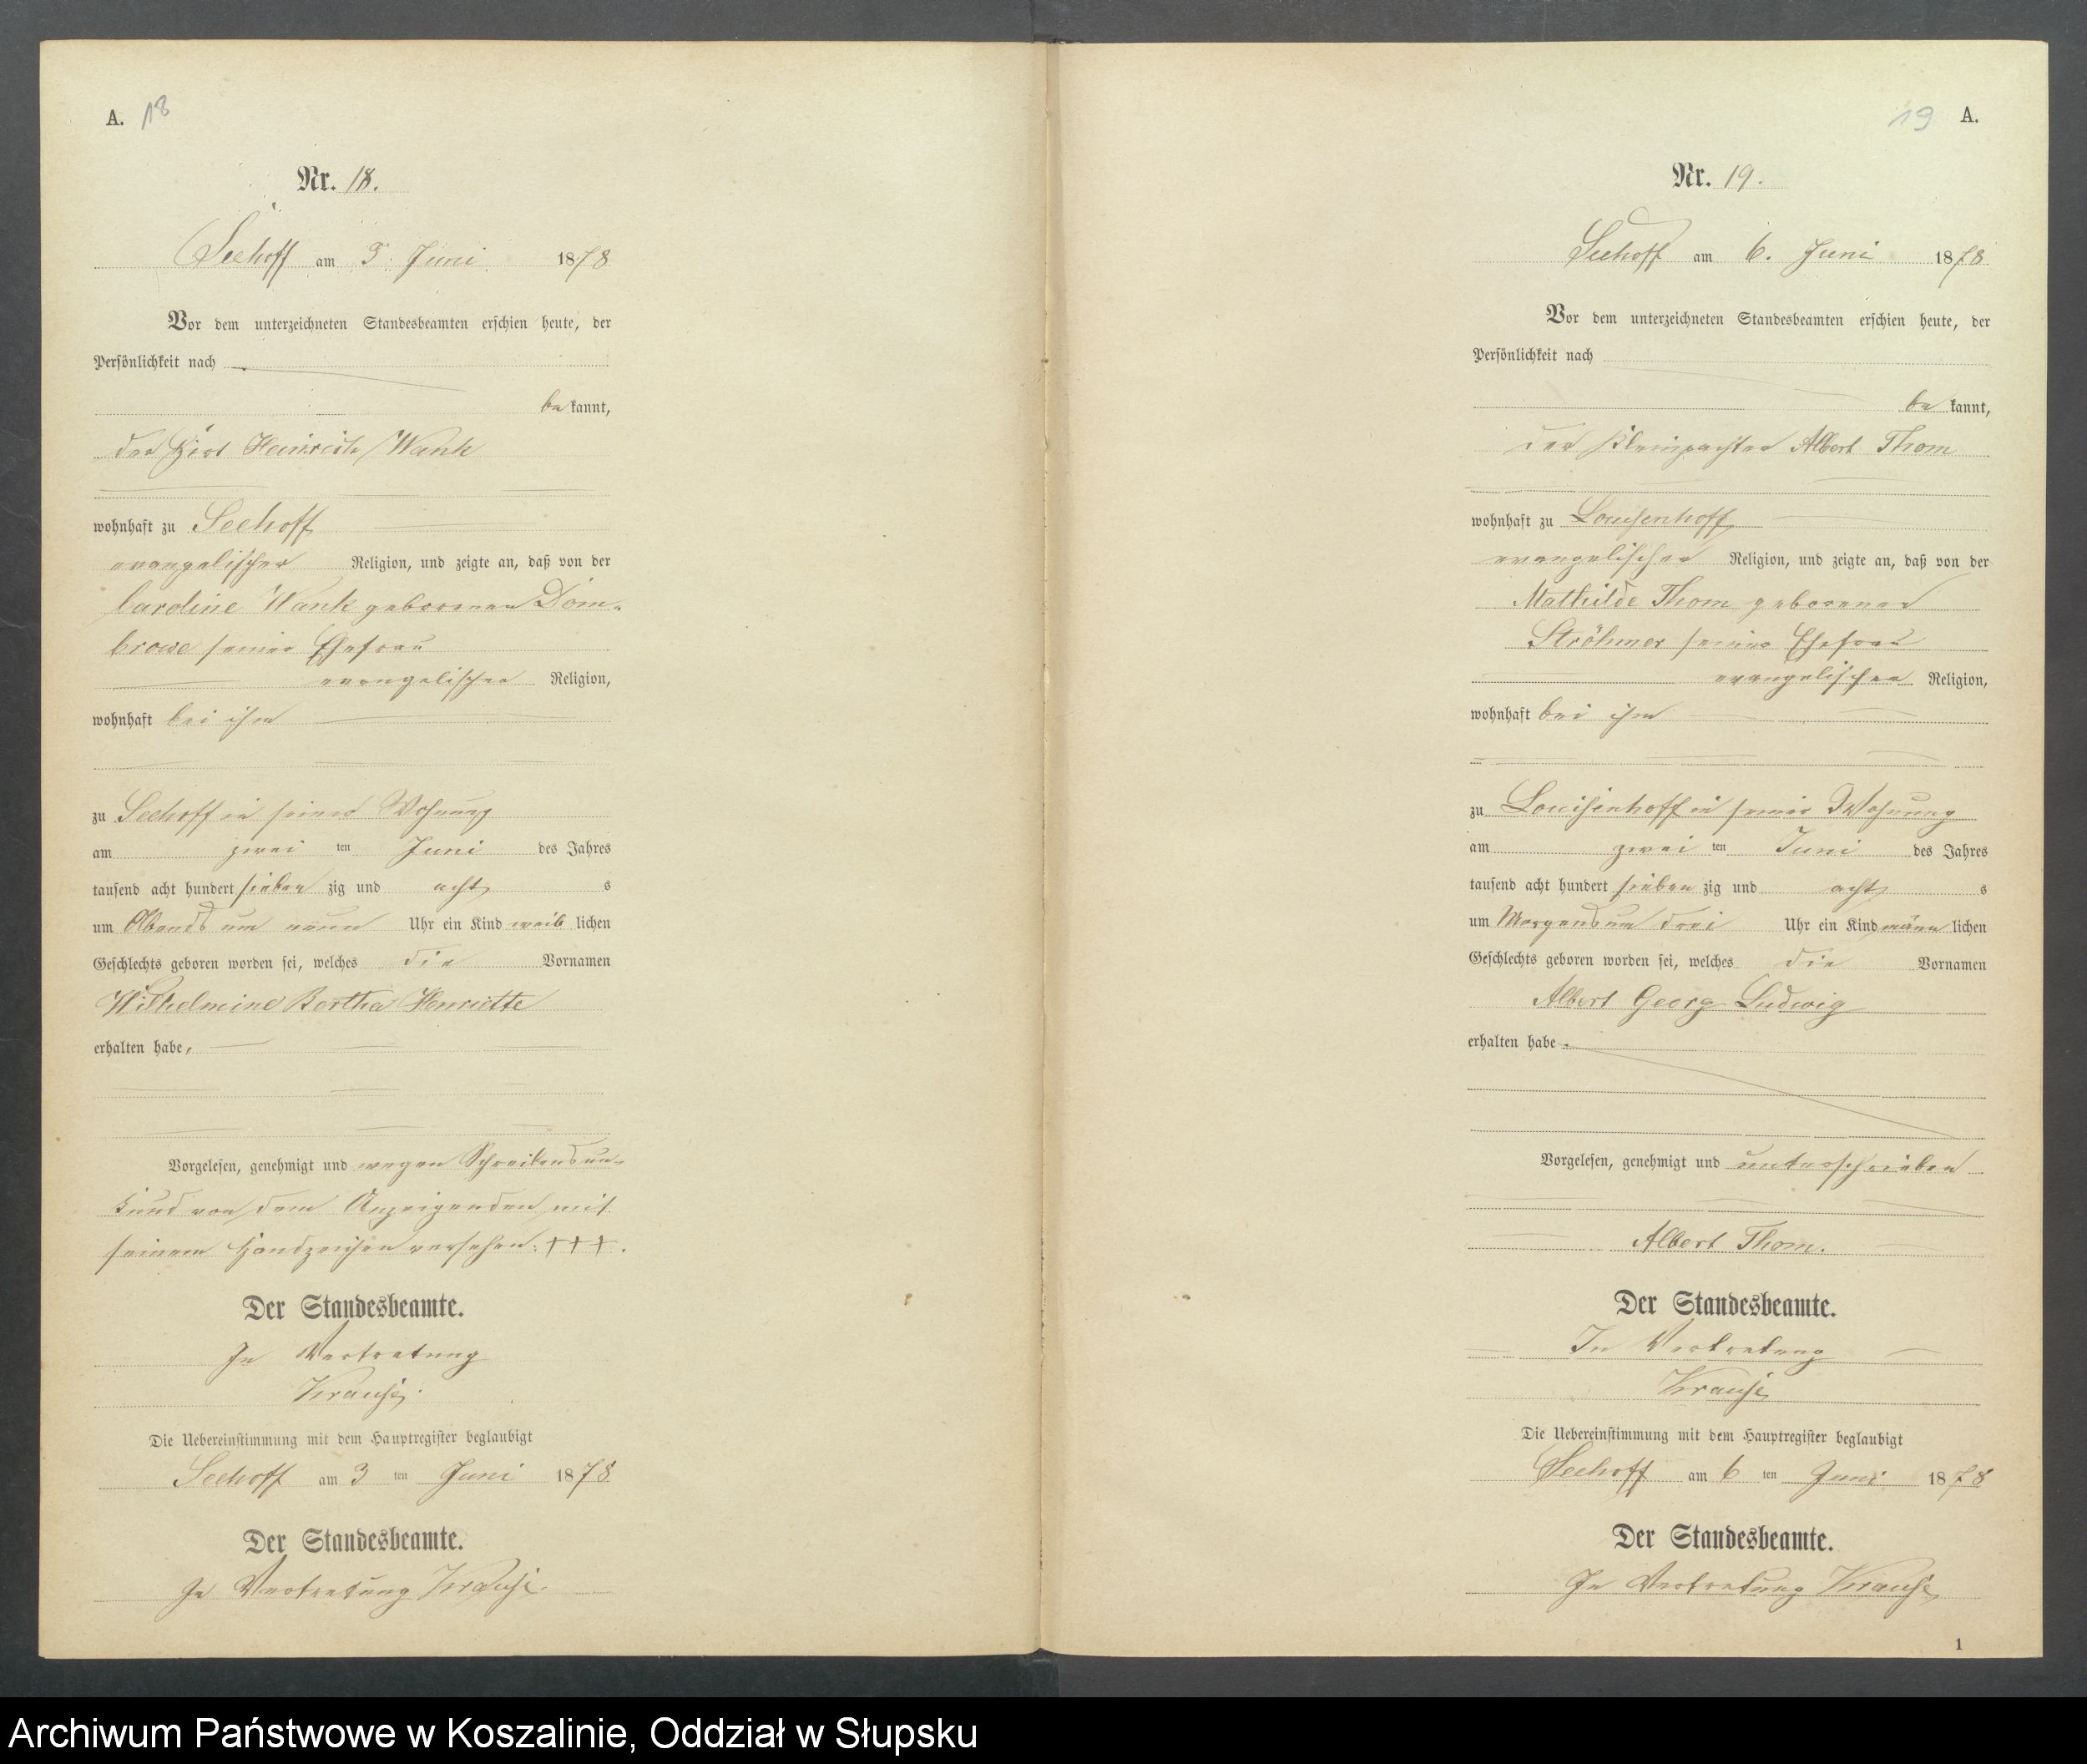 A. 18
Nr. 18.
Seehoff am 3. Juni 1878
Vor dem unterzeichneten Standesbeamten erschien heute, der
Persönlichkeit nach
bekannt,
der Hirt Heinrich Wank
wohnhaft zu Seehoff
evangelischer Religion, und zeigte an, daß von der
Caroline Wank geborenen Dom-
browe seiner Ehefrau
evangelischer Religion,
wohnhaft bei ihm
zu Seehoff in seiner Wohnung
am zwei ten Juni des Jahres
tausend acht hundert sieben zig und acht s
um Abends um neun Uhr ein Kind weib lichen
Geschlechts geboren worden sei, welches die Vornamen
Wilhelmine Bertha Henriette
erhalten habe.
Vorgelesen, genehmigt und wegen Schreibensun-
kund von dem Anzeigenden mit
seinem Handzeichen versehen: +++.
Der Standesbeamte.
In Vertretung
Krause.
Die Uebereinstimmung mit dem Hauptregister beglaubigt
Seehoff am 3 ten Juni 1878
Der Standesbeamte.
In Vertretung Krause.
19 A.
Nr. 19.
Seehoff am 6. Juni 1878
Vor dem unterzeichneten Standesbeamten erschien heute, der
Persönlichkeit nach
bekannt,
der Kleinpachter Albert Thom
wohnhaft zu Louisenhoff
evangelischer Religion, und zeigte an, daß von der
Mathilde Thom geborener
Ströhmer seiner Ehefrau
evangelischer Religion,
wohnhaft bei ihm
zu Louisenhoff in seiner Wohnung
am zwei ten Juni des Jahres
tausend acht hundert sieben zig und acht s
um Morgens um drei Uhr ein Kind männ lichen
Geschlechts geboren worden sei, welches die Vornamen
Albert Georg Ludwig
erhalten habe.
Vorgelesen, genehmigt und unterschrieben
Albert Thom.
Der Standesbeamte.
In Vertretung
Krause
Die Uebereinstimmung mit dem Hauptregister beglaubigt
Seehoff am 6 ten Juni 1878
Der Standesbeamte.
In Vertretung Krause
1
Archiwum Państwowe w Koszalinie, Oddział w Słupsku